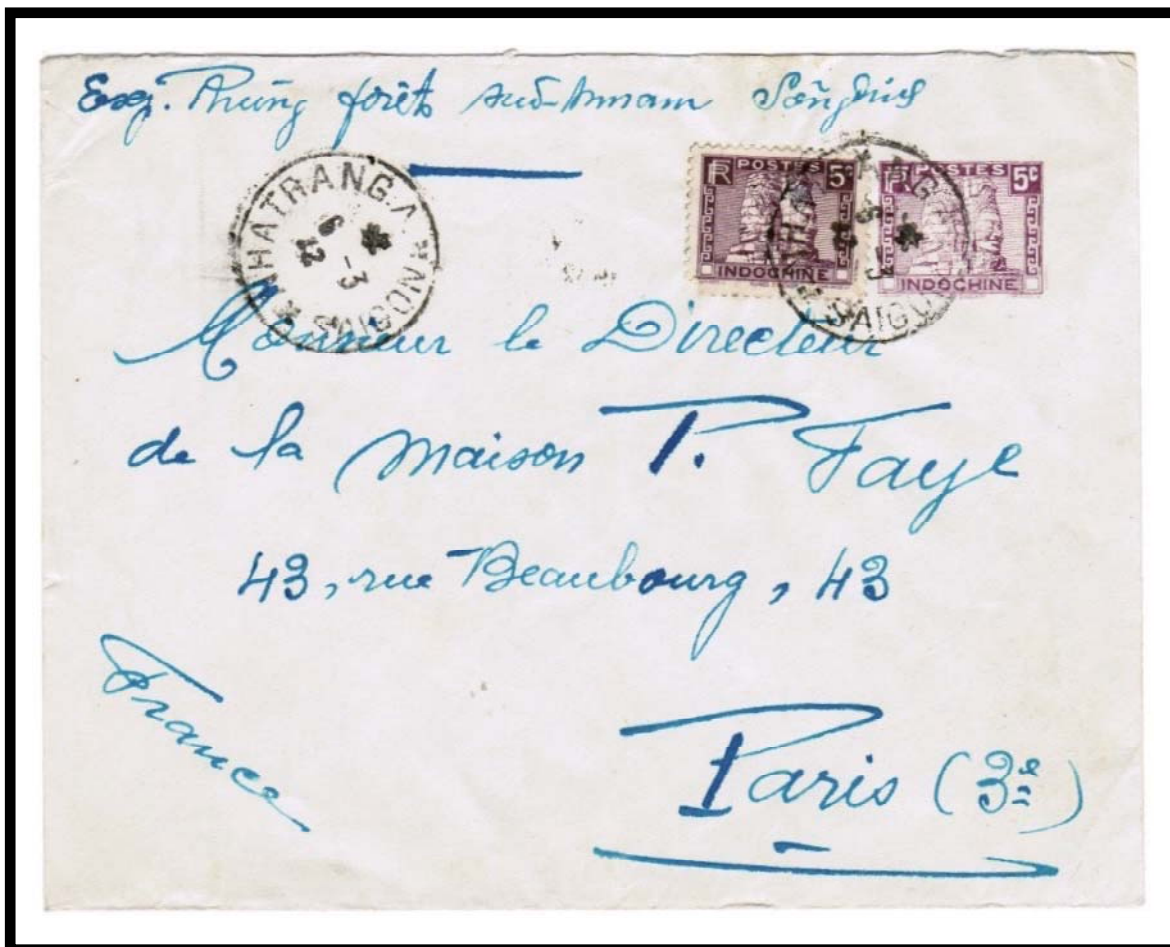 forêts Sud-Annam
NHATRANG A SAIGON
6 -3
RF POSTES 5c
INDOCHINE
RF POSTES 5c
INDOCHINE
Monsieur le Directeur
de la maison P. Faye
43, rue Beaubourg, 43
France
Paris (3e)